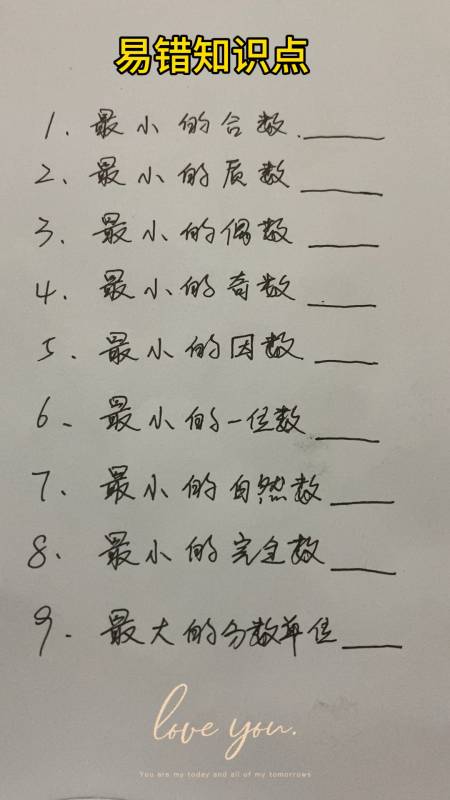 易错知识点
1. 最小的合数.
2、最小的质数
3. 最小的偶数
4. 最小的奇数
5. 最小的因数
6、最小的一位数
7. 最小的自然数
8. 最小的完全数
9. 最大的分数单位
love you.
You are my today and all of my tomorrows